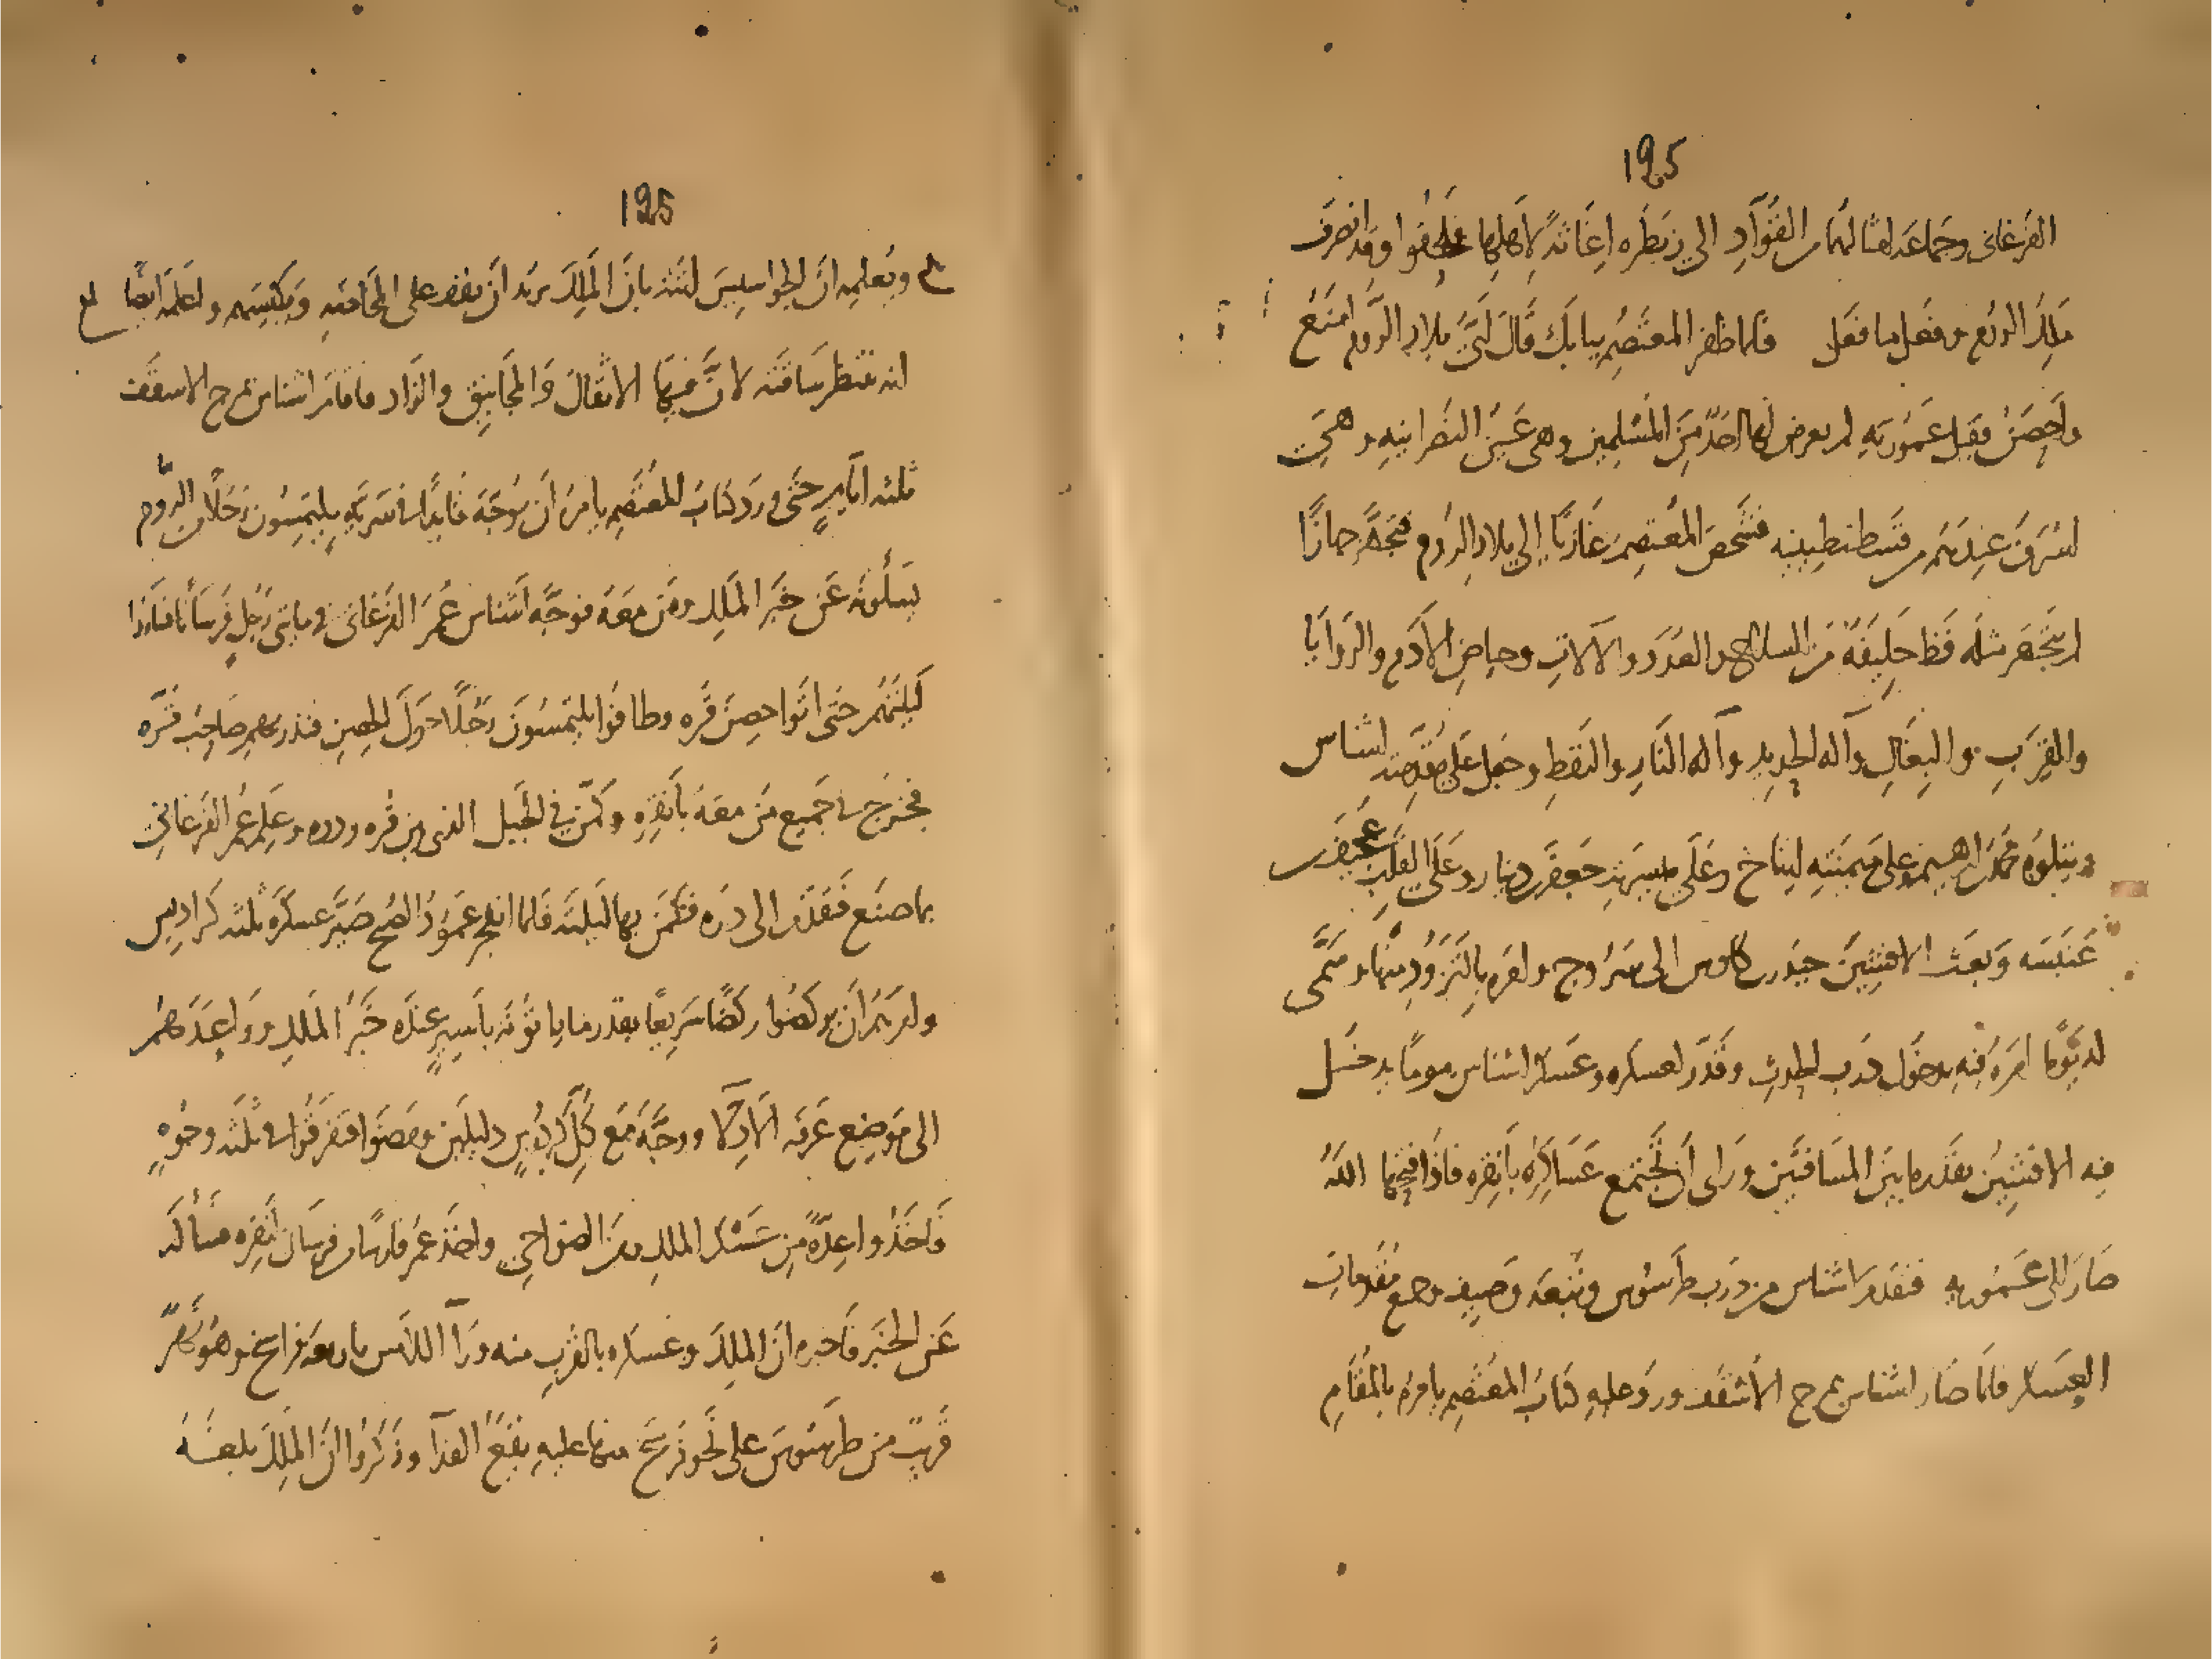 ١٩٥
الفرغانى وجماعه من القوّاد الى زبطره اغاثةً لاهلها فلحقوا وقد انصرف
ملك الروم وفعل ما فعل فلما ظفر المعتصم ببابك قال اىّ بلاد الروم امنع
واحصن فقيل عموريه لم يعرض لها احدٌ من المسلمين وهى عين النصرانيه وهى
اشرف عندهم من قسطنطينيه فشخص المعتصم غازيًا الى بلاد الروم فتجهّز جهازًا
لم يتجهز مثله قط خليفة من السلاح والعدد والآلات وحياض الادم والروايا
والقرب والبغال وآلة الحديد وآلة النار والنفط وجعل على مقدمته اشناس
ويتلوه محمد بن ابرهيم وعلى ميمنته ايتاخ وعلى ميسرته جعفر بن دينار وعلى القلب عجيف بن
عنبسه وبعث الافشين حيدر بن كاوس الى سروج وامره بالبروز منها وسمّى
له يومًا امره فيه بدخول درب الحدث وقدّر لعسكره وعسكر اشناس يومًا يدخل
فيه الافشين بقدر ما بين المسافتين وراى ان تجتمع عساكره بانقره فاذا فتحها الله
صار الى عموريه فتقدم اشناس من درب طرسوس واتبعه وصيف ومع مقدمات
العسكر فلما صار اشناس بمرج الاسقف ورد عليه كتاب المعتصم يامره بالمقام
١٩٥
ويعلمه ان الجواسيس اتته بان الملك يريد ان على المخاضه ويكبسهم واعلمه ايضا
انه ينتظر ساقته لانّ فيها الاثقال والمجانيق والزاد فاقام اشناس بمرج الاسقف
ثلثه ايّامٍ حتّى ورد كتاب المعتصم يامره ان يوجّه قايدًا فى سريّةٍ يلتمسون رجلًا من الروم
يسألونه عن خبر الملك ومن معه فوجّه اشناس عمر الفرغانى فى مايتى رجل فرسانا فساروا
ليلتهم حتى اتوا حصن قره وطافوا يلتمسون رجلًا حول الحصن فنذر بهم صاحب قرّه
فخرج فى جميع من معه بأنقره وكمن فى الجبل الذى بين قره ودره وعلم عمر الفرغانى
بما صنع فتقدّم الى دره فكمن بها ليلته فلما انفجر عمود الصبح صيّر عسكره ثلثه كراديس
وامرهم ان يركضوا ركضًا سريعًا بقدر ما ياتونه بأسيرٍ عنده خبر الملك وواعدهم
الى موضع عرفه الادلّا ووجّه مع كل كردوسٍ دليلين ومضوا فتفرّقوا فى ثلثه وجوهٍ
فاخذوا عدّةً من عسكر الملك ومن الضواحى واخذ عمر فارسًا من فرسان أنقره فسأله
عن الخبر فاخبره ان الملك وعسكره بالقرب منه ورآ اللامس باربعة فراسخ وهو نهرٌ
قريبٌ من طرسوس على نحو فرسخ منها عليه يقع الفدآ وذكروا انّ الملك بلغه